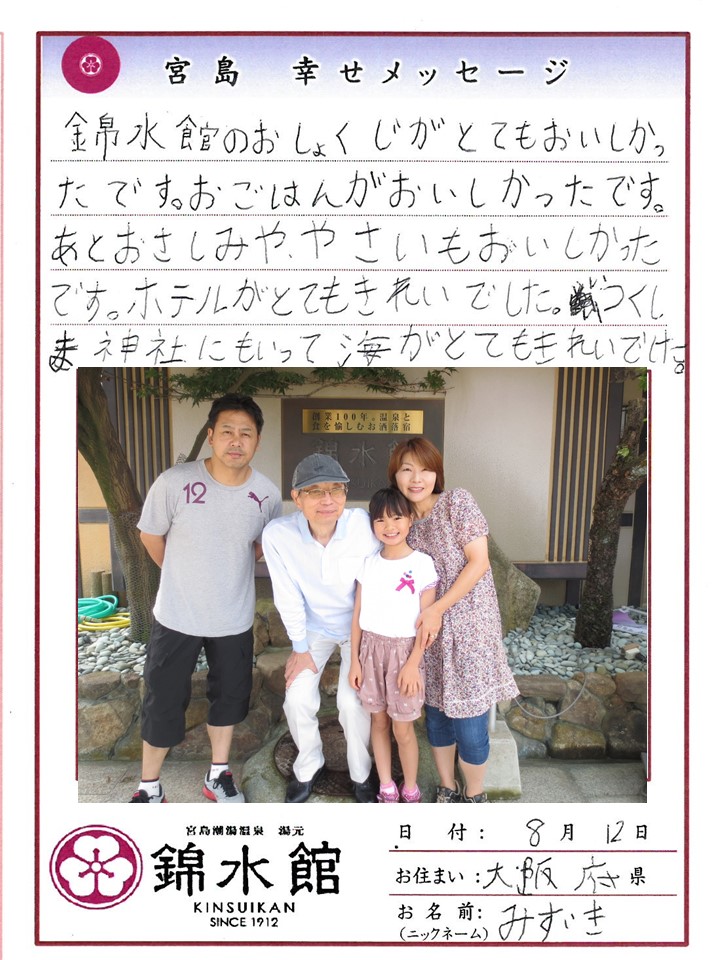 宮島 幸せメッセージ
錦帛水館のおしょくじがとてもおいしかっ
たです。おごはんがおいしかったです。
あとおさしみや、やさいもおいしかった
です。ホテルがとてもきれいでした。いつくし
ま神社にもいって海がとてもきれいでした。
創業100年。温泉と
食を愉しむお酒落宿
錦水館
宮島潮湯温泉 湯元
錦水館
KINSUIKAN
SINCE 1912
日 付: 8月 12日
お住まい:大阪 府 県
お名前:
(ニックネーム) みずき